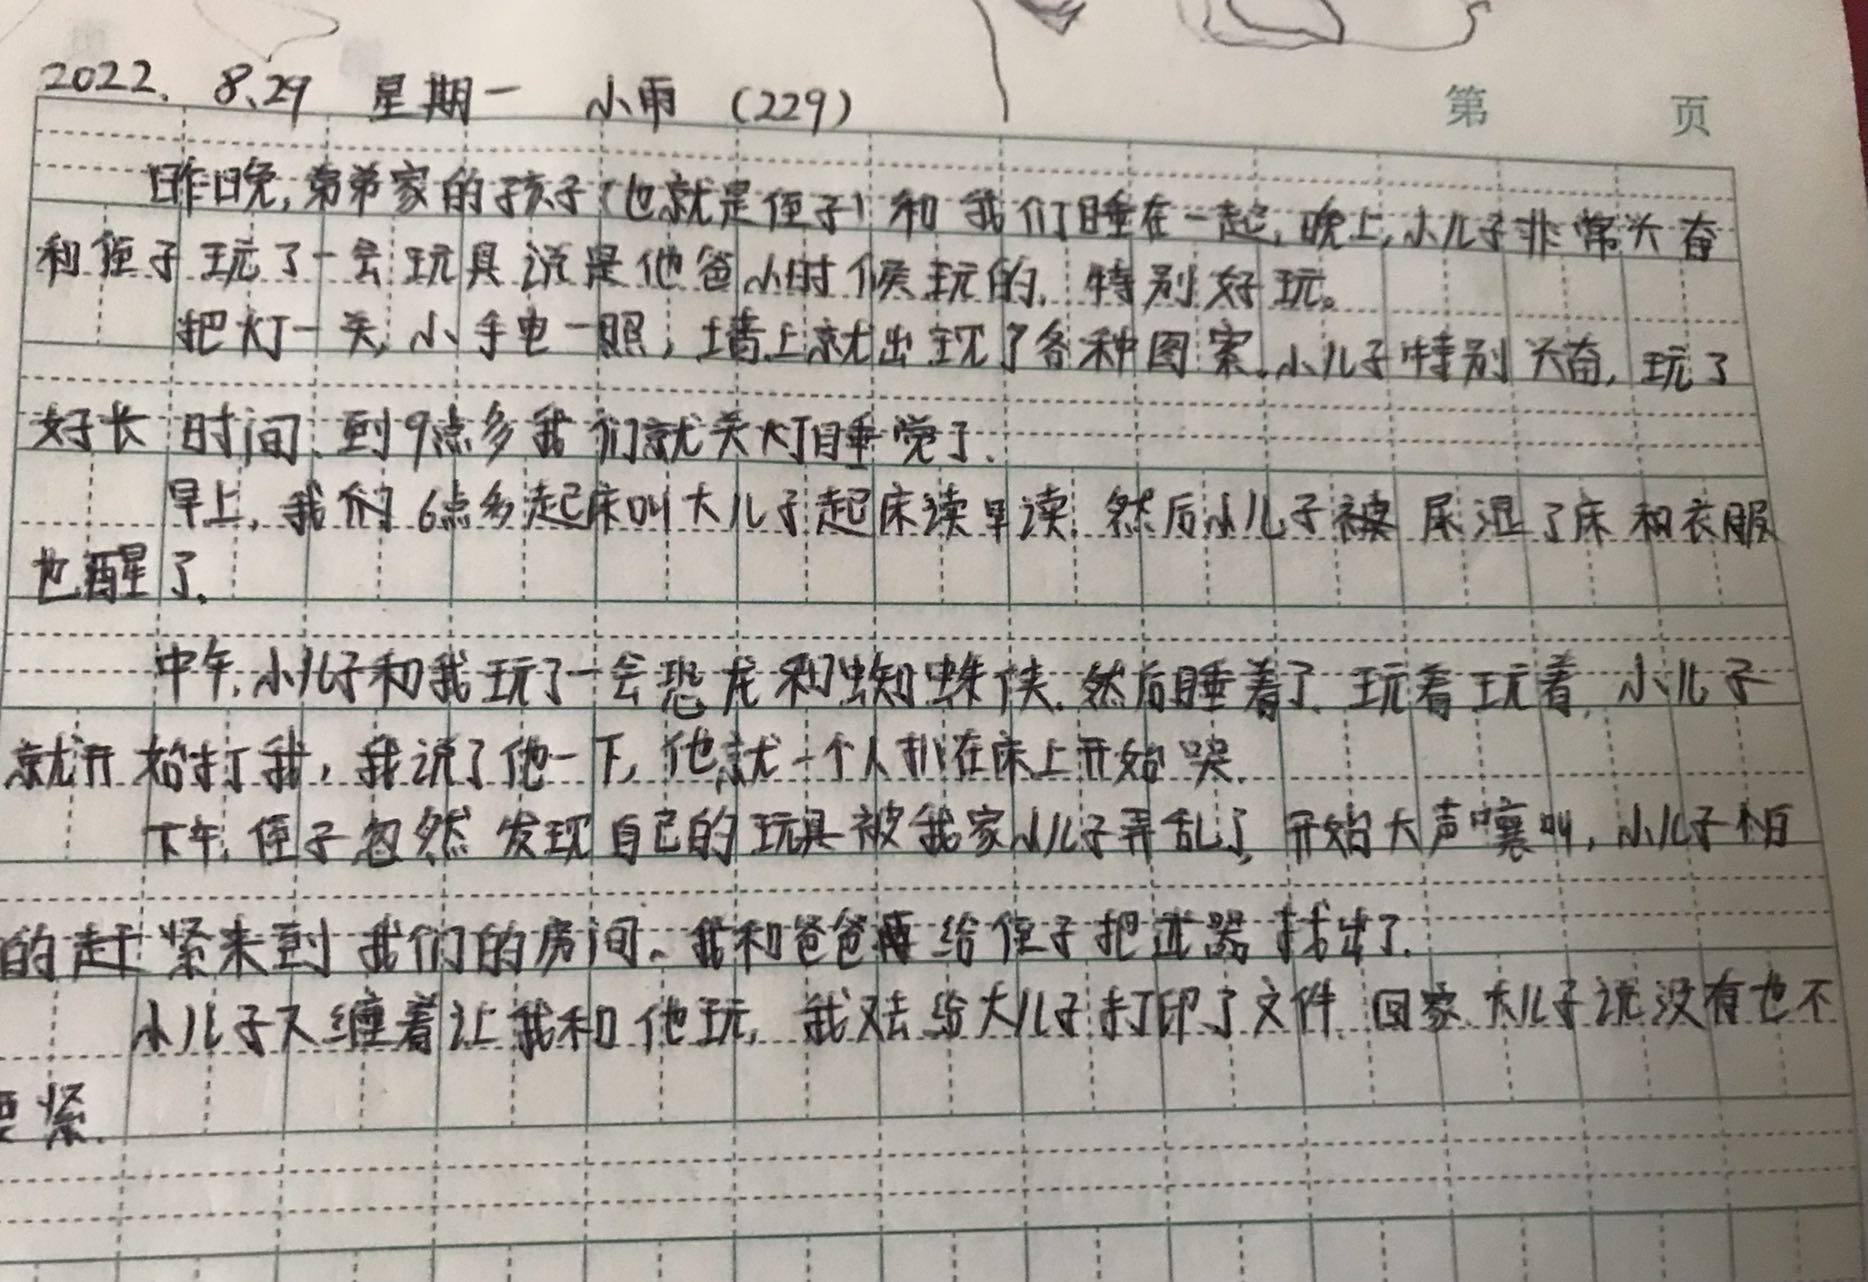 2022. 8.29 星期一 小雨 (229)
第 页
昨晚,弟弟家的孩子(也就是侄子)和我们睡在一起,晚上,小儿子非常兴奋
和侄子玩了一会玩具说是他爸小时候玩的,特别好玩。
把灯一关,小手电一照,墙上就出现了各种图案.小儿子特别兴奋,玩了
好长时间、到9点多我们就关灯睡觉了.
早上,我们6点多起床叫大儿子起床读早读.然后小儿子被尿湿了床和衣服
也醒了.
中午,小儿子和我玩了一会恐龙和蜘蛛侠.然后睡着了.玩着玩着,小儿子
就开始打我,我说了他一下,他就一个人趴在床上开始哭.
下午,侄子忽然发现自己的玩具被我家小儿子弄乱了,开始大声嚷叫,小儿子怕
的赶紧来到我们的房间.我和爸爸再给侄子把武器找出了.
小儿子又缠着让我和他玩,我又去给大儿子打印了文件.回家.大儿子说没有也不
要紧.